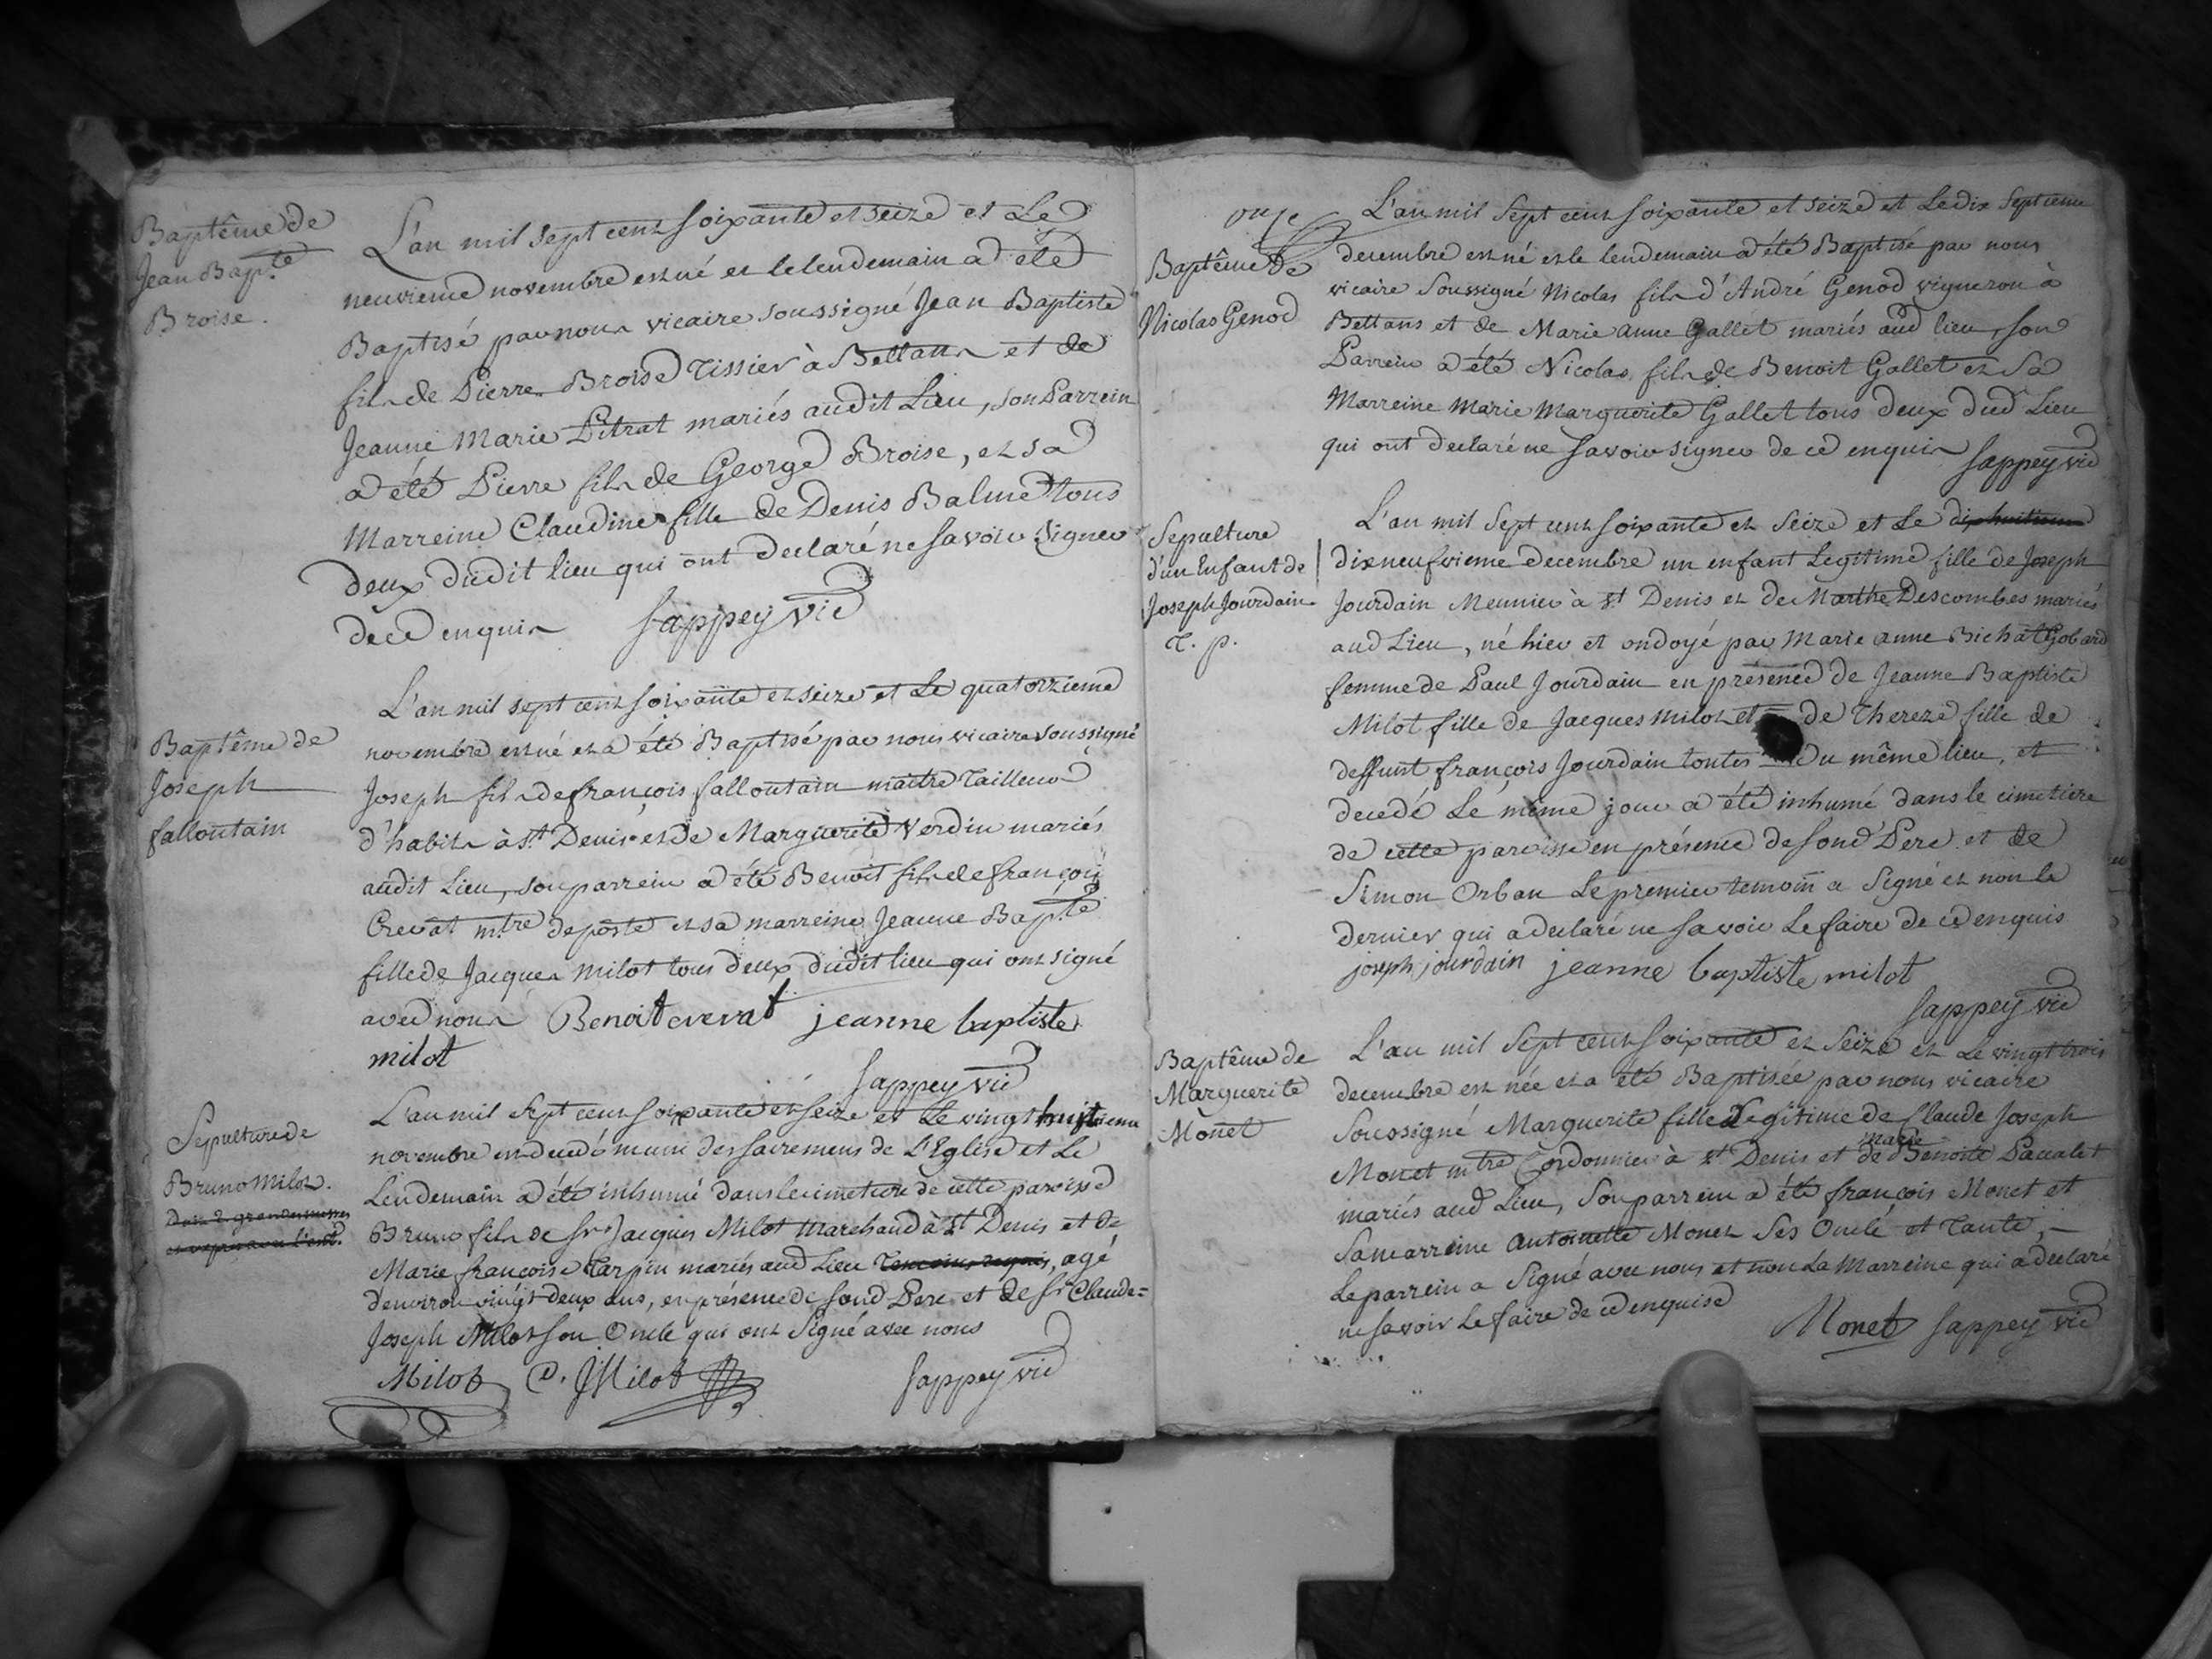 Baptême de
Jean Bap.te
Broise.
L'an mil sept cent soixante et seize et Le
neuvieme novembre est né et le lendemain a été
Baptisé par nous vicaire soussigné Jean Baptiste
fils de Pierre Broise Tissier à Bettans et de
Jeanne Marie Pitrat mariés audit Lieu, son Parrein
a été Pierre fils de George Broise, et sa
Marreine Claudine fille de Denis Balme tous
deux dudit lieu qui ont declaré ne savoir signer
de ce enquis Sappey vic
Baptême de
Joseph
falloutain
L'an mil sept cent soixante et seize et Le quatorzieme
novembre est né et a été Baptisé par nous vicaire soussigné
Joseph fils de françois falloutain maitre Tailleur
d'habits à St Denis et de Marguerite Verdin mariés
audit Lieu, son parrein a été Benoit fils de françois
Crevat mtre de poste et sa marreine Jeanne Bapte
fille de Jacques Milot tous deux dudit lieu qui ont signé
avec nous Benoit crevat jeanne baptiste
milot
Sappey vic
Sepulture de
Bruno Milot.
L'an mil sept cent soixante et seize et Le vingt huitieme
novembre est decedé muni des sacremens de L'Eglise et Le
Lendemain a été inhumé dans le cimetiere de cette paroisse
Bruno fils de Sr Jacques Milot marchand à St Denis et de
Marie françoise Tarpin mariés aud Lieu Temoins requis, agé
d'environ vingt deux ans, en présence de sond Pere et de Sr Claude=
Joseph Milot son Oncle qui ont signé avec nous
Milot C. J Milot Sappey vic
onze
Baptême de
Nicolas Genod
L'an mil sept cent soixante et seize et Le dix septieme
decembre est né et le lendemain a été Baptisé par nous
vicaire soussigné Nicolas fils d'André Genod vigneron à
Bettans et de Marie anne Gallet mariés aud lieu, son
Parrein a été Nicolas fils de Benoit Gallet et Sa
Marreine Marie Marguerite Gallet tous deux dud Lieu
qui ont declaré ne savoir signer de ce enquis Sappey vic
Sepulture
d'un Enfant de
Joseph Jourdain
T. p.
L'an mil sept cent soixante et seize et Le dixhuitieme
dixneufvieme decembre un enfant Legitime fille de Joseph
Jourdain Meunier à St Denis et de Marthe Descombes mariés
aud Lieu, né hier et ondoyé par Marie anne Bichat Gobard
femme de Paul Jourdain en présence de Jeanne Baptiste
Milot fille de Jacques Milot et de Thereze fille de
deffunt françois Jourdain toutes du même lieu, et
decedé Le même jour a été inhumé dans le cimetiere
de cette paroisse en présence de sond Pere et de
Simon Orban Le premier temoin a signé et non le
dernier qui a declaré ne savoir Le faire de ce enquis
joseph jourdain jeanne baptiste milot
Sappey vic
Baptême de
Marguerite
Monet
L'an mil sept cent soixante et seize et Le vingt trois
decembre est née et a été Baptisée par nous vicaire
Soussigné Marguerite fille Legitime de Claude Joseph
Monet mtre Cordonnier à St Denis et de marie Benoite Paccalet
mariés aud Lieu, Son parrein a été françois Monet et
Sa marreine Antoinette Monet Ses Oncle et Tante,
Le parrein a signé avec nous et non La Marreine qui a declaré
ne savoir Le faire de ce enquise
Monet Sappey vic